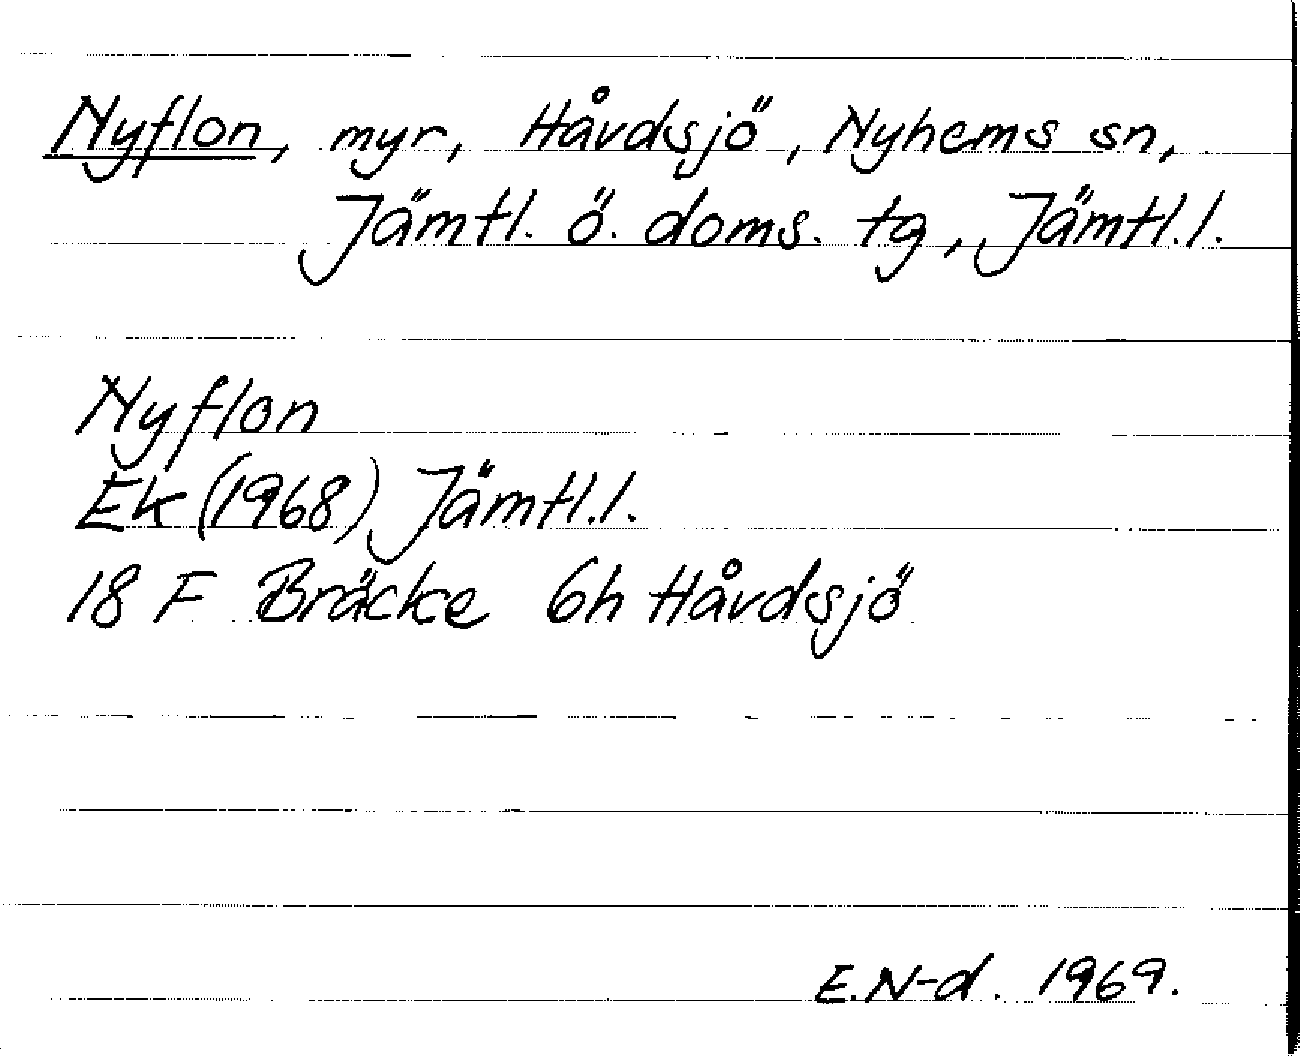 Nyflon, myr, Håvdsjö, Nyhems sn,
Jämtl. ö. doms. tg, Jämtl.l.
Nyflon
Ek (1968) Jämtl.l.
18 F Bräcke 6h Håvdsjö
E.N-d. 1969.